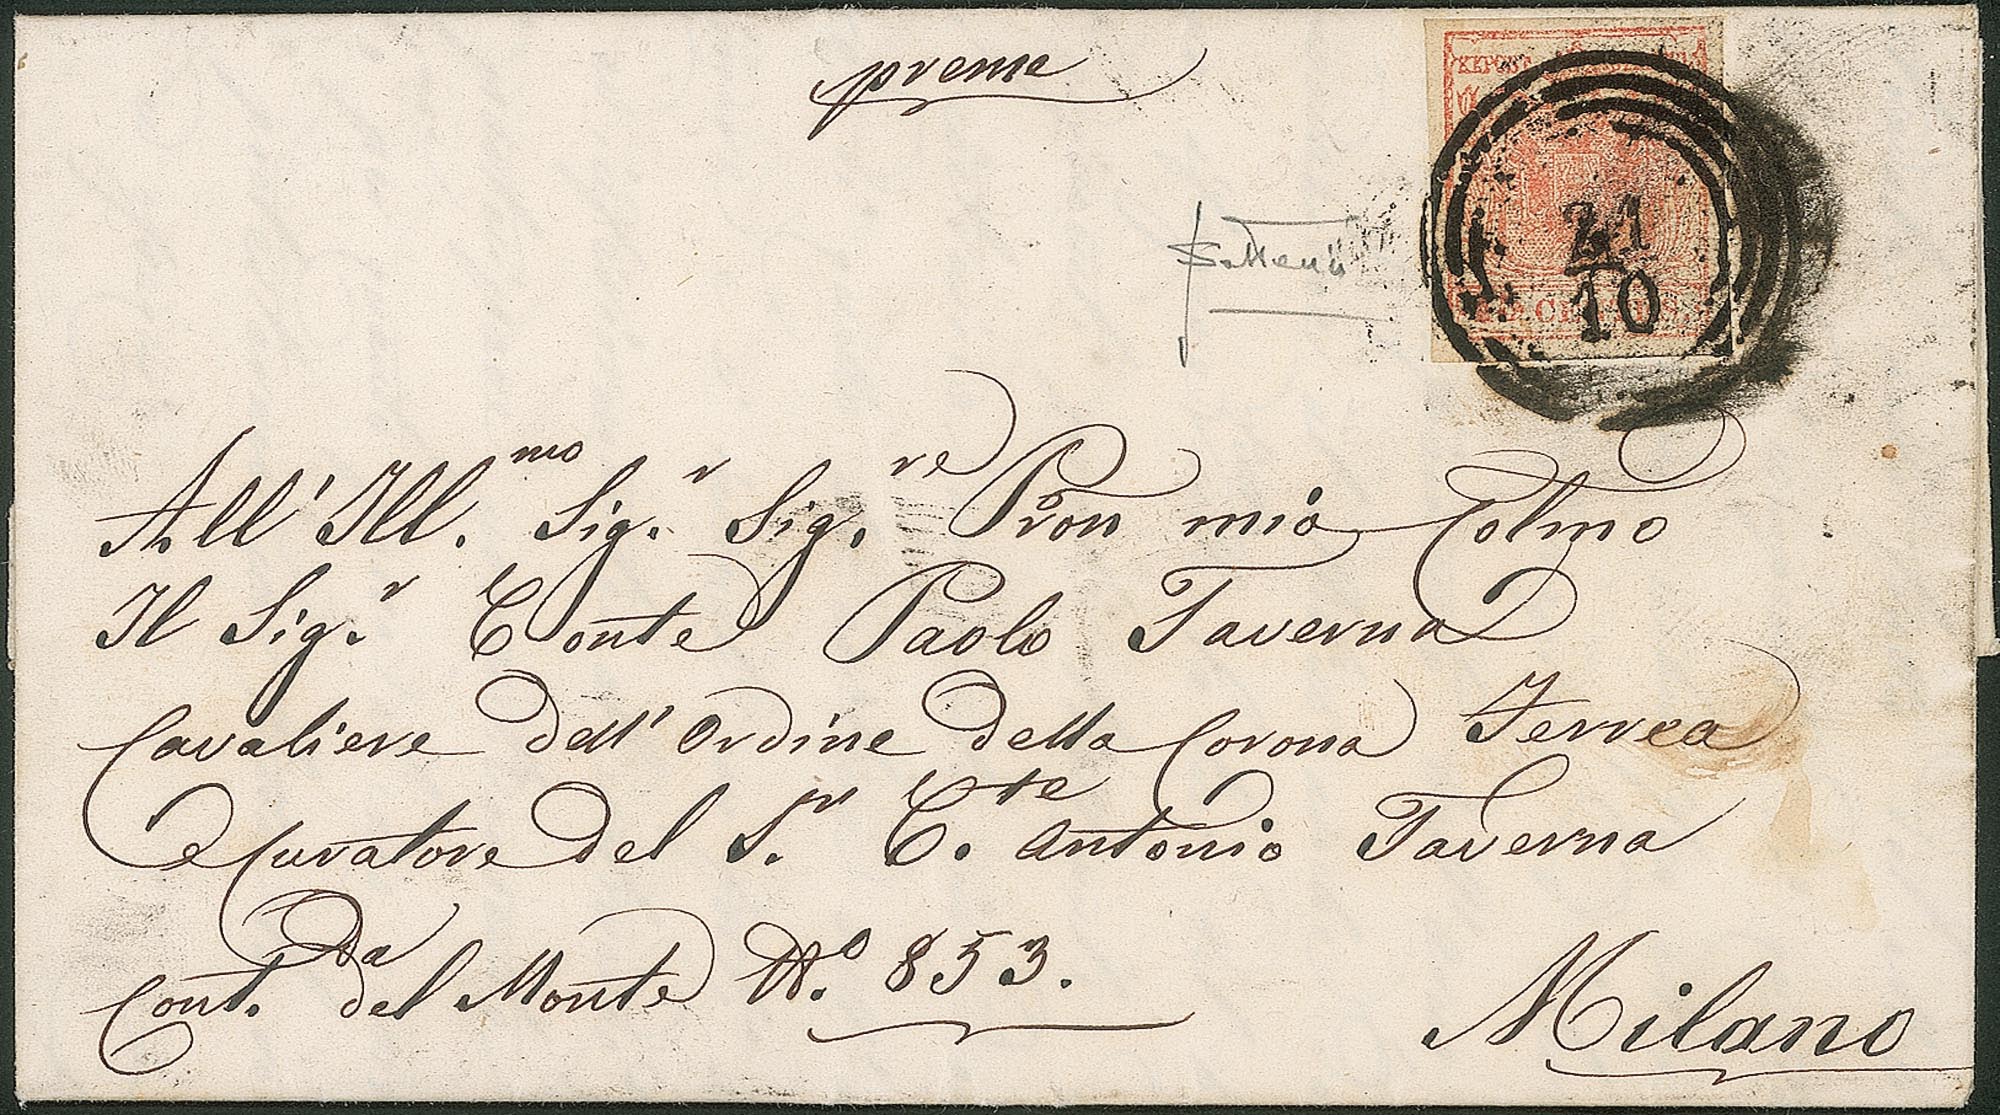 preme
KKPOST
21
10
CENTES.
All' Ill.mo Sig.r Sig.re Pron mio Colmo
Il Sig.r Conte Paolo Taverna
Cavaliere dell' Ordine della Corona Ferrea
e Curatore del S.r C.te Antonio Taverna
Cont.da del Monte N.o 853.
Milano